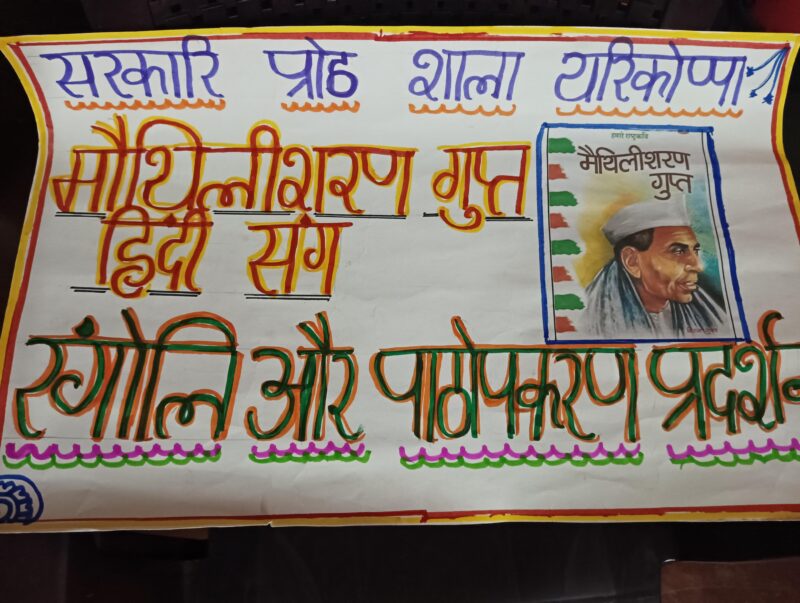 सरकारि प्रोठ शाला यरिकोप्पा
मौथिलीशरण गुप्त
हिंदी संग
हमारे राष्ट्रकवि
मैथिलीशरण
गुप्त
रंगोलि और पाठोपकरण प्रदर्शन